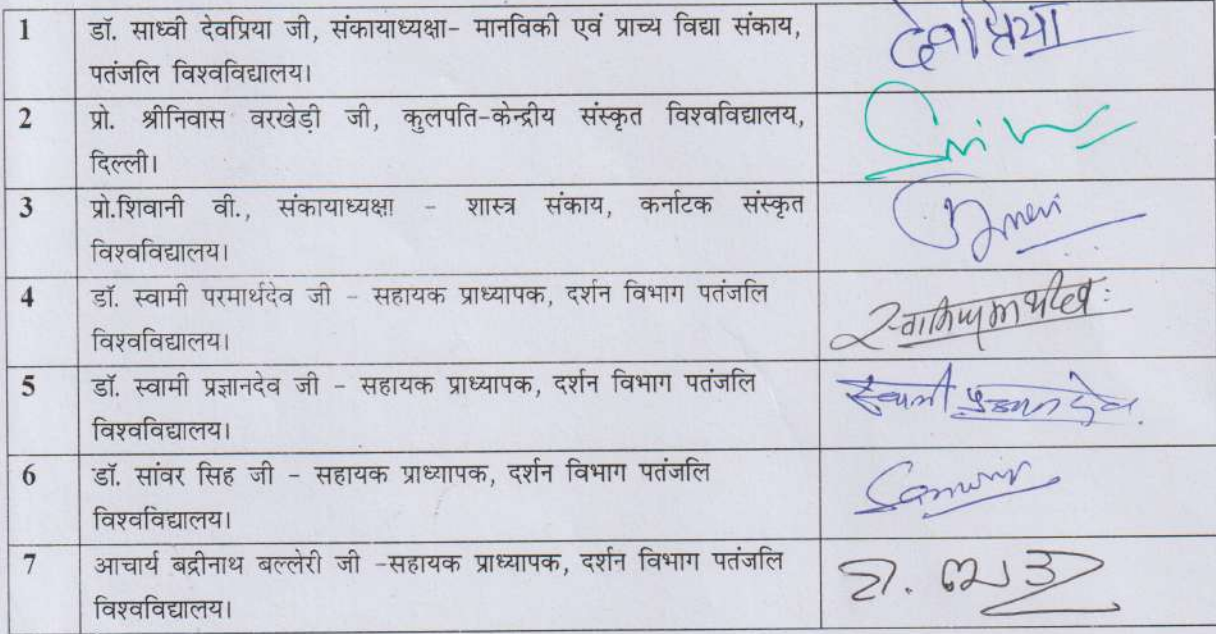 1 डॉ. साध्वी देवप्रिया जी, संकायाध्यक्षा- मानविकी एवं प्राच्य विद्या संकाय, देवप्रिया
पतंजलि विश्वविद्यालय।
2 प्रो. श्रीनिवास वरखेड़ी जी, कुलपति-केन्द्रीय संस्कृत विश्वविद्यालय,
दिल्ली।
3 प्रो.शिवानी वी., संकायाध्यक्षा - शास्त्र संकाय, कर्नाटक संस्कृत
विश्वविद्यालय।
4 डॉ. स्वामी परमार्थदेव जी - सहायक प्राध्यापक, दर्शन विभाग पतंजलि स्वामी परमार्थदेवः
विश्वविद्यालय।
5 डॉ. स्वामी प्रज्ञानदेव जी - सहायक प्राध्यापक, दर्शन विभाग पतंजलि स्वामी प्रज्ञानदेव
विश्वविद्यालय।
6 डॉ. सांवर सिह जी - सहायक प्राध्यापक, दर्शन विभाग पतंजलि
विश्वविद्यालय।
7 आचार्य बद्रीनाथ बल्लेरी जी -सहायक प्राध्यापक, दर्शन विभाग पतंजलि
विश्वविद्यालय।